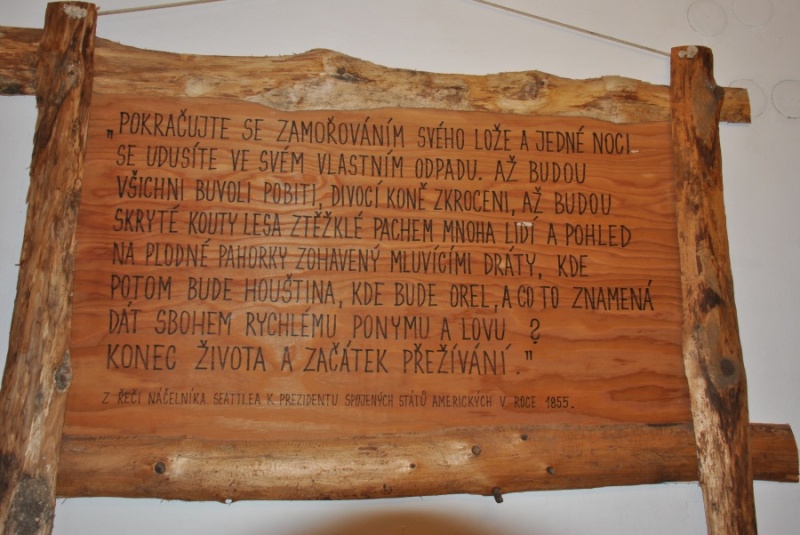 „POKRAČUJTE SE ZAMOŘOVÁNÍM SVÉHO LOŽE A JEDNÉ NOCI
SE UDUSÍTE VE SVÉM VLASTNÍM ODPADU. AŽ BUDOU
VŠICHNI BUVOLI POBITI, DIVOCÍ KONĚ ZKROCENI, AŽ BUDOU
SKRYTÉ KOUTY LESA ZTĚŽKLÉ PACHEM MNOHA LIDÍ A POHLED
NA PLODNÉ PAHORKY ZOHAVENÝ MLUVÍCÍMI DRÁTY, KDE
POTOM BUDE HOUŠTINA, KDE BUDE OREL, A CO TO ZNAMENÁ
DÁT SBOHEM RYCHLÉMU PONYMU A LOVU ?
KONEC ŽIVOTA A ZAČÁTEK PŘEŽÍVÁNÍ."
Z ŘEČI NÁČELNÍKA SEATTLEA K PREZIDENTU SPOJENÝCH STÁTŮ AMERICKÝCH V ROCE 1855.